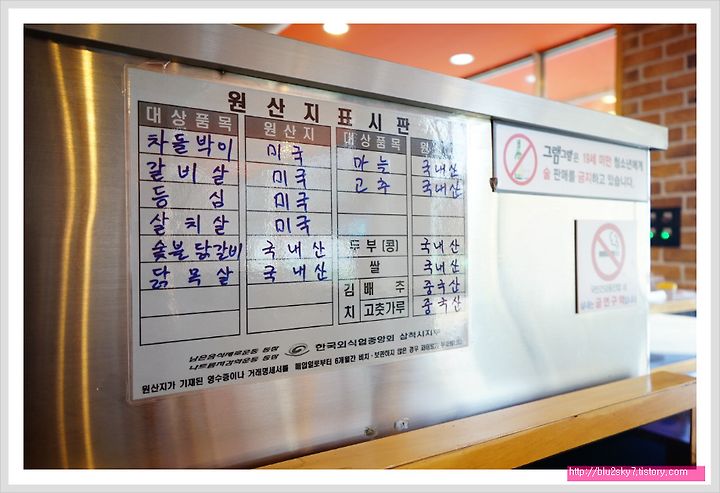 원산지표시판
대상품목 원산지 대상품목 원산지
차돌박이 미국 마늘 국내산
갈비살 미국 고추 국내산
등심 미국
살치살 미국
숯불닭갈비 국내산 두부(콩) 국내산
닭목살 국내산 쌀 국내산
김치 배추 중국산
고춧가루 중국산
남은음식제로운동 동참
나트륨저감화운동 동참
한국외식업중앙회 삼척시지부
원산지가 기재된 영수증이나 거래명세서를 매입일로부터 6개월간 비치·보관하지 않은 경우
19세 미만 청소년에게
술 판매를 금지하고 있습니다.
http://blu2sky7.tistory.com